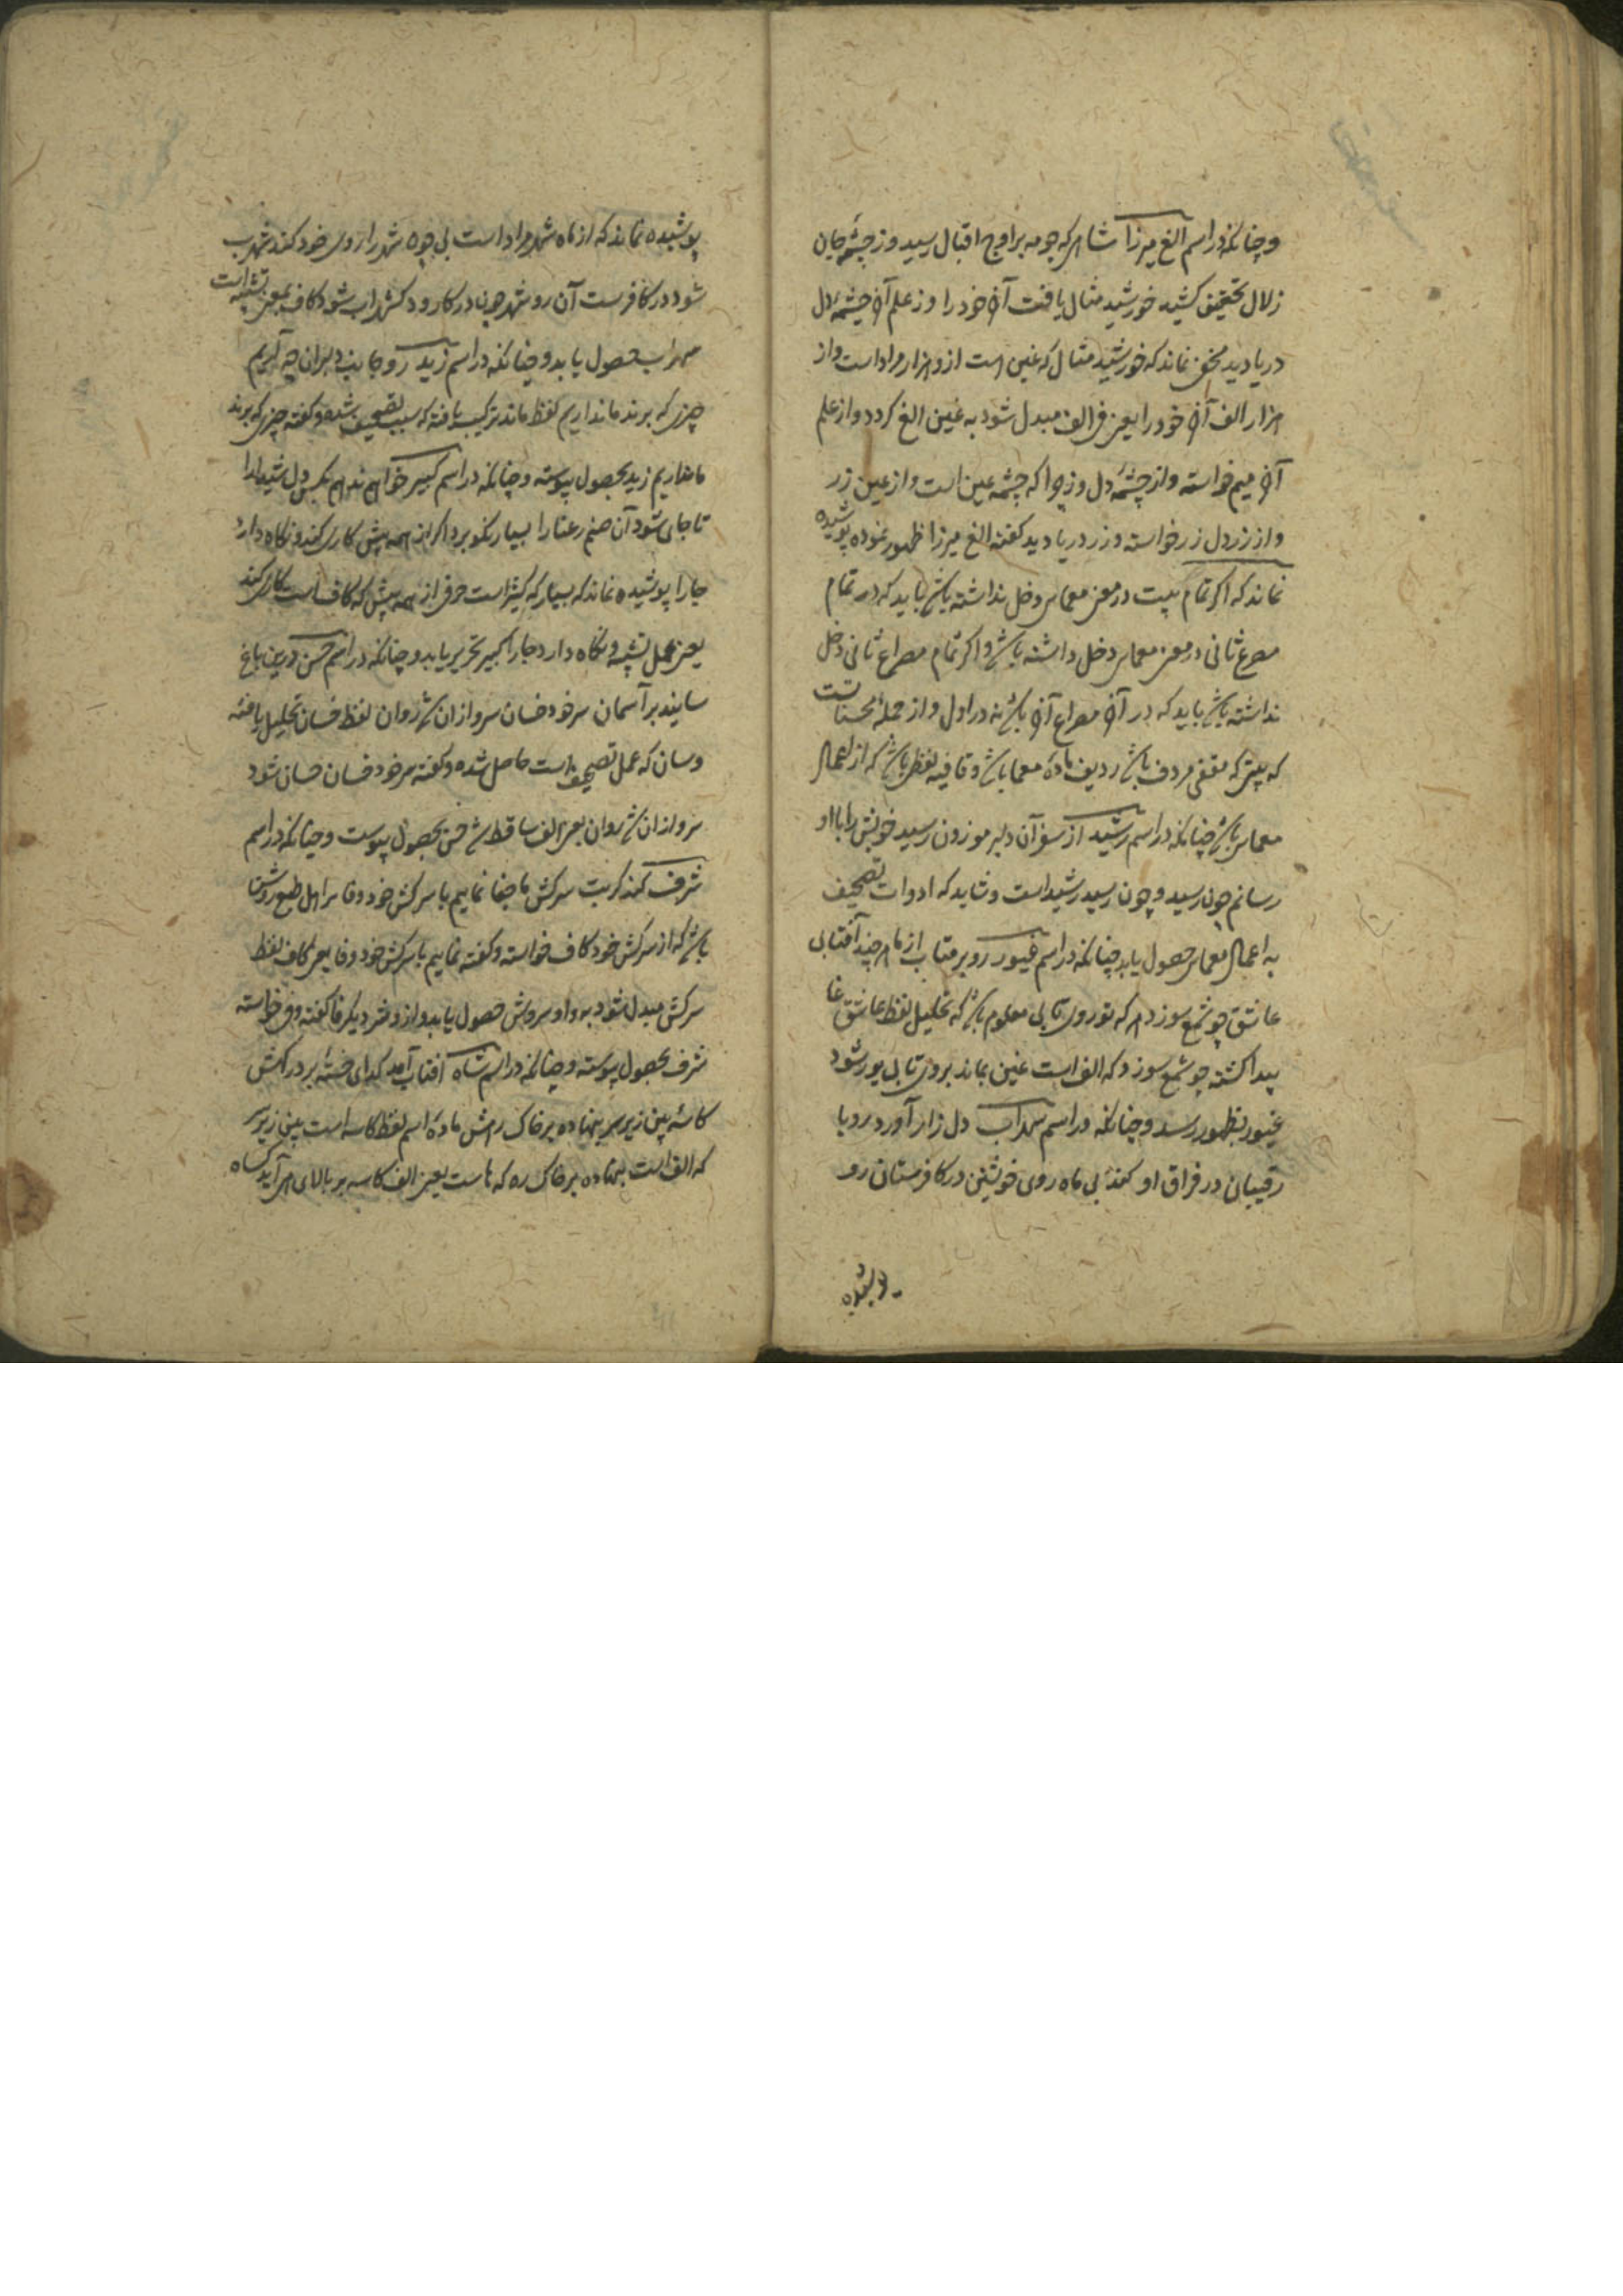 وچنانکه در اسم الغ میرزا شاهی که چو مه بر اوج اقبال رسید وز چشمه جان
زلال تحقیق کشید خورشید مثال یافت آخر خود را وز علم آخر چشمه دل
دریا دید مخفی نماند که خورشید مثال که عین است ازو هزار مراد است و از
هزار الف آخر خود را یعنی فی الف مبدل شود به غین الغ کردد و از علم
آخر میم خواسته و از چشمه دل وزچرا که چشمه عین است و از عین زر
و از زر دل زر خواسته و زر دریا دید کفته الغ میرزا ظهور نموده پوشیده
نماند که اکر تمام بیت در معنی معمایی دخل نداشته باشد باید که در تمام
مصرع ثانی در معنی معمایی دخل داشته باشد و اکر تمام مصراع ثانی دخل
نداشته باشد باید که در آخر مصراع آخر باشد نه در اول و از جمله محسنات است
که بیتی که مقفی مردف باشد ردیف ماده معما باشد و قافیه لفظی باشد که از اعمال
معمایی باشد چنانکه در اسم رشید از سفر آن دلبر موزون رسید خویش را با او
رسانم چون رسید و چون رسید رشید است و شاید که ادوات تصحیف
به اعمال معمایی حصول یابد چنانکه در اسم غیور رو بر متاب از ما هر چند آفتابی
عاشق چو شمع سوزد هر که تو روی تابی معلوم باشد که تحلیل لفظ عاشق عا
پیدا کشته چو شمع سوزد که الف است عین بماند بروی تابی یور شود
غیور بظهور رسد و چنانکه در اسم سهراب دل زار آورد رو با
رقیبان در فراق او کند بی ماه روی خویشتن در کافرستان رو
پوشیده
پوشیده نماند که از ماه شهر مراد است بی چو ه شهر را روی خود کند شهر ب
شود در کافرست آن رو شهر چون در کار رود کشهراب شود کاف بمعنی تشبیه است
سهراب حصول یابد و چنانکه در اسم زید رو بجانب دلبران چه آریم
چیزی که برند ما نداریم لفظ ماند ترکیب یافته که سبب تصحیف شده و کفته چیزی که برند
ما نداریم زید بحصول پیوسته و چنانکه در اسم کبیر خواهم ندهم بکس دل شیدا را
تا جای شود آن صنم رعنا را بسیار نکو برد اکر از همه پیش کاری کند و نکاه دارد
جا را پوشیده نماند که بسیار که کثیر است حرفی از همه پیش که کاف است کاری کند
یعنی عمل تشبیه و نکاه دارد جا را کبیر تحریر یابد و چنانکه در اسم حسن درین باغ
سایند بر آسمان سر خود خسان سرو ازان شد روان لفظ خسان تحلیل یافته
و سان که عمل تصحیف است حاصل شده و کفته سر خود خسان حسان شود
سرو ازان شد روان یعنی الف ساقط شد حسن بحصول پیوست و چنانکه در اسم
شرف کند کر بت سرکش ما جفا نماییم با سرکش خود وفا بر اهل طبع روشن
باشد که از سرکش خود کاف خواسته و کفته نماییم با سرکش خود وفا یعنی کاف لفظ
سرکش مبدل شود به واو سروش حصول یابد و از وش دیکر فا کفته وفی خواسته
شرف بحصول پیوسته و چنانکه در اسم شاه آفتاب آمد کدای خسته بر درکهش
کاسه بین زیر سر بنهاده بر خاک رهش ماده اسم لفظ کاسه است بین زیر سر
که الف است بنهاده بر خاک ره که ها ست یعنی الف کاسه بر بالای هر آید کساه